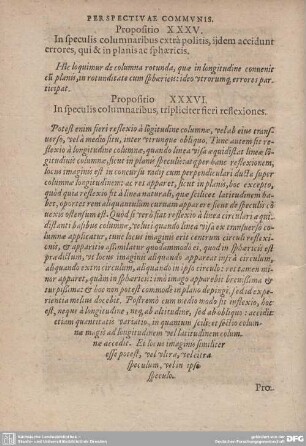 PERSPECTIVAE COMMVNIS.
Propositio XXXV.
In speculis columnaribus extrà politis, ijdem accidunt
errores, qui & in planis ac sphæricis.
Hîc loquimur de columna rotunda, quæ in longitudine conuenit
cũ planis, in rotunditate cum sphæricis: ideo vtrorumq; errores par-
ticipat.
Propositio XXXVI.
In speculis columnaribus, tripliciter fieri reflexiones.
Potest enim fieri reflexio à lõgitudine columnæ, vel ab eius trans-
uerso, vel à medio situ, inter vtrunque obliquo. Tunc autem fit re-
flexio à longitudine columnæ, quando linea visa æquidistat lineæ lõ-
gitudinis columnæ, sicut in planis speculis: atque per hanc reflexionem,
locus imaginis est in concursu radij cum perpendiculari ducta super
columnæ longitudinem: ac res apparet, sicut in planis, hoc excepto,
quòd quia reflexio fit à linea naturali, quæ scilicet latitudinem ha-
bet, oportet rem aliquantulum curuam apparere sicut de speculis cõ-
uexis ostensum est. Quòd si verò fiat reflexio à linea circulari æqui-
distanti basibus columnæ, veluti quando linea visa ex transuerso co-
lumnæ applicatur, tunc locus imaginis erit centrum circuli reflexi-
onis, & apparitio assimilatur quodammodo ei, quæ in sphæricis est
prædictum, vt locus imaginis aliquando appareat infra circulum,
aliquando extra circulum, aliquando in ipso circulo: rectam enim mi-
nor apparet, quàm in sphæricis: imò imago apparebit breuissima &
turpissima: & hoc non potest commodè in plano depingi, sed id ex-
perientia melius docebit. Postremò cum medio modo fit reflexio, hoc
est, neque à longitudine, neq; ab altitudine, sed ab obliquo: accidit
etiam quantitatis variatio, in quantum scilicet sectio colum-
næ magis ad longitudinem vel latitudinem colum-
næ accedit. Et locus imaginis similiter
esse potest, vel vltra, vel citra
speculum, vel in ipso
speculo.
Pro-